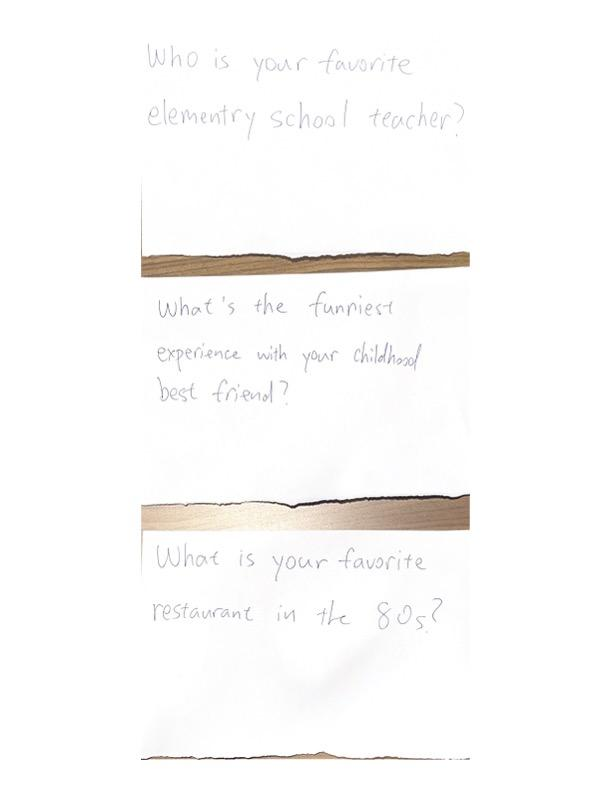 Who is your favorite
elementry school teacher?
What's the funniest
experience with your childhood
best friend?
What is your favorite
restaurant in the 80s?